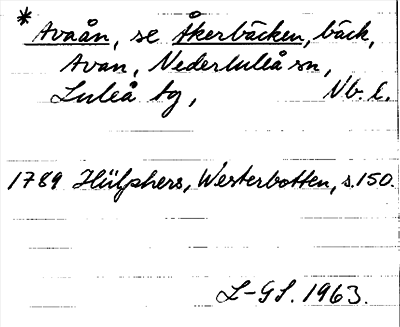 * Avaån, se Åkerbäcken, bäck,
Avan, Nederluleå sn,
Luleå tg, Nb. l.
1789 Hülphers, Westerbotten, s.150.
L-GL. 1963.